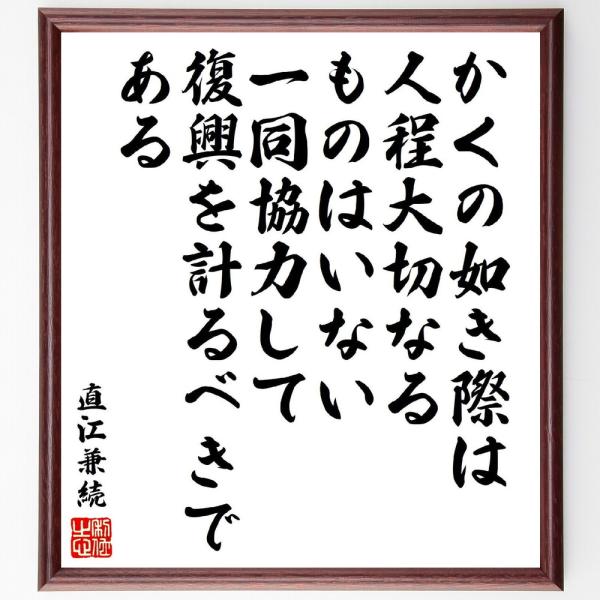 かくの如き際は
人程大切なる
ものはいない
一同協力して
復興を計るべきで
ある
直江兼続